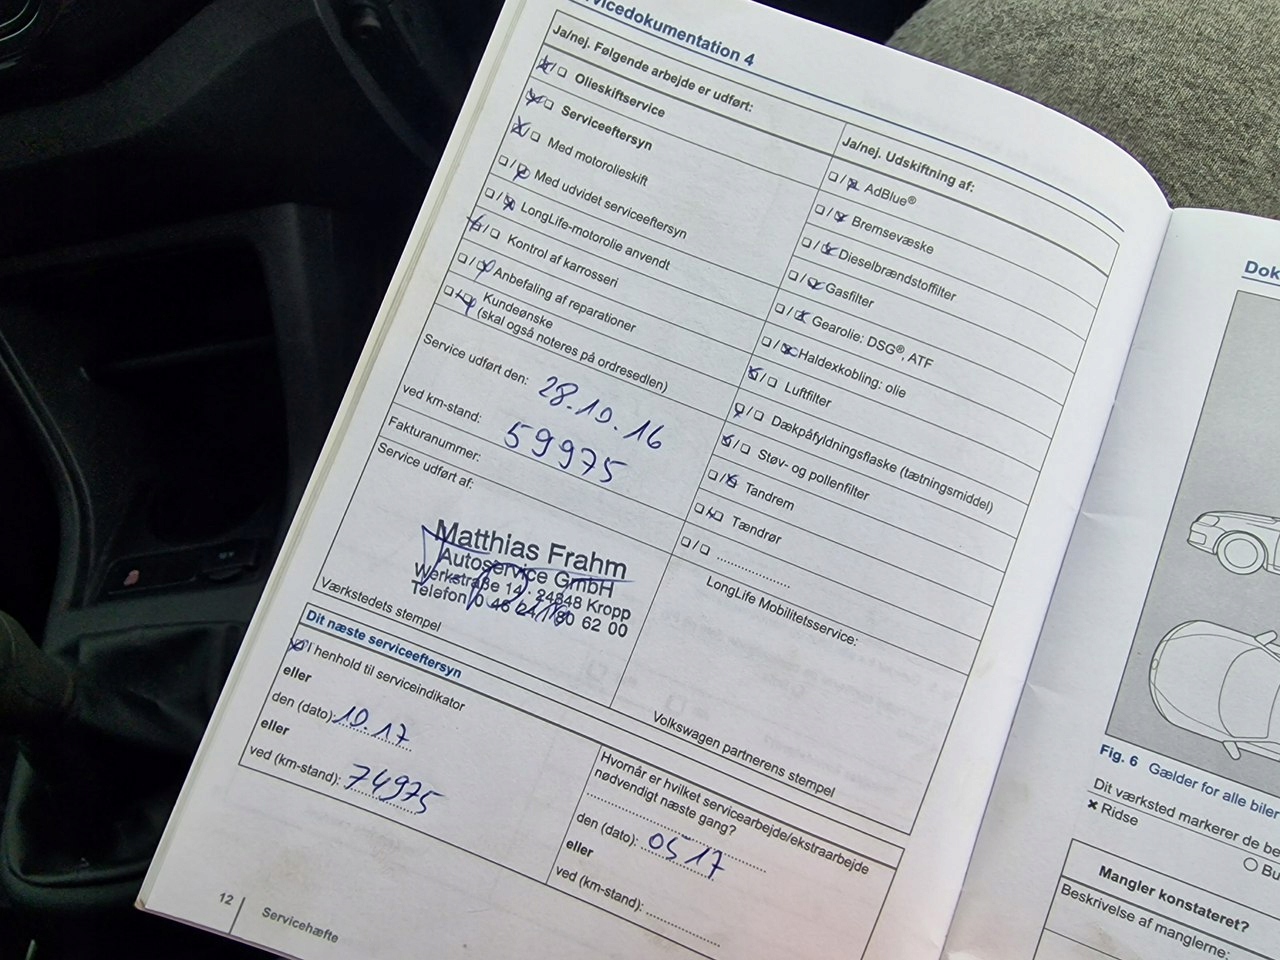 vicedokumentation 4
Ja/nej. Følgende arbejde er udført:
Olieskiftservice
Serviceeftersyn
Med motorolieskift
Med udvidet serviceeftersyn
LongLife-motorolie anvendt
Kontrol af karrosseri
Anbefaling af reparationer
Kundeønske
(skal også noteres på ordresedlen)
Service udført den: 28.10.16
ved km-stand: 59975
Fakturanummer:
Service udført af:
Matthias Frahm
Autoservice GmbH
Werkstraße 14 · 24848 Kropp
Telefon 0 46 24 / 80 62 00
Værkstedets stempel
Ja/nej. Udskiftning af:
AdBlue®
Bremsevæske
Dieselbrændstoffilter
Gasfilter
Gearolie: DSG®, ATF
Haldexkobling: olie
Luftfilter
Dækpåfyldningsflaske (tætningsmiddel)
Støv- og pollenfilter
Tandrem
Tændrør
LongLife Mobilitetsservice:
Volkswagen partnerens stempel
Dit næste serviceeftersyn
I henhold til serviceindikator
eller
den (dato): 10.17
eller
ved (km-stand): 74975
Hvornår er hvilket servicearbejde/ekstraarbejde
nødvendigt næste gang?
den (dato): 05 17
eller
ved (km-stand):
12
Servicehæfte
Dok
Fig. 6 Gælder for alle biler
Dit værksted markerer de be
× Ridse
Bu
Mangler konstateret?
Beskrivelse af manglerne: